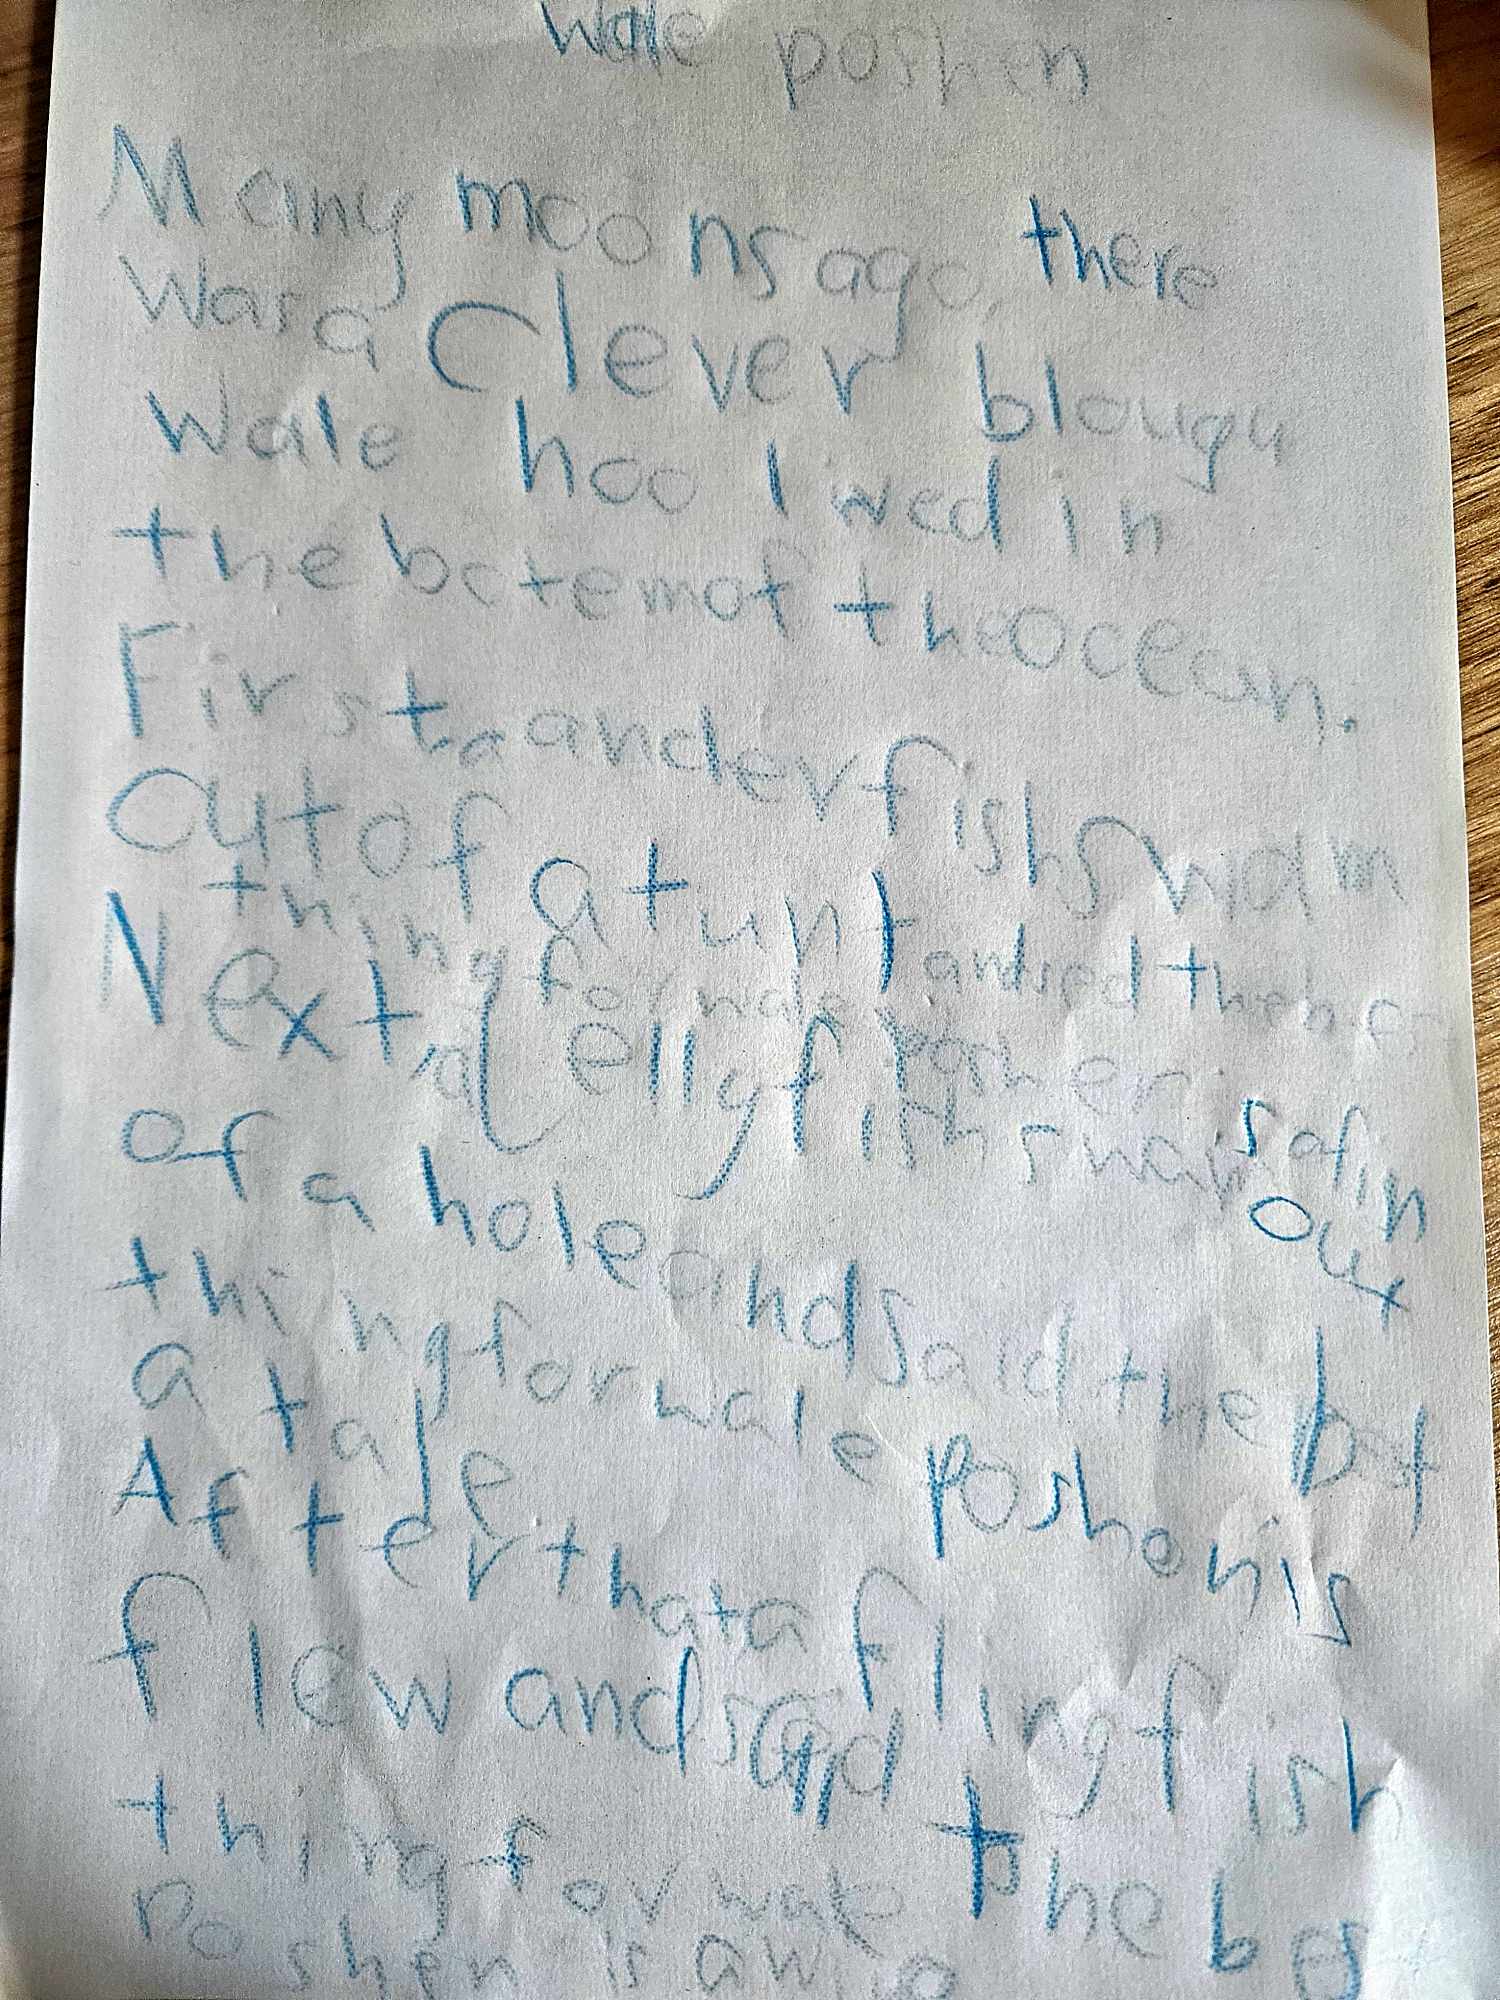 Wale poshen
Many moons ago, there
Was a Clever blougu
Wale hoo liwed in
the botem of the Ocean.
First, a anclerfish Swam
Out of a tunl and sed the best
thing for wale poshen is a fin
Next, a Jellyfish swam out
of a hole and said the bet
thing for wale poshon is
a tale
After that a fling fish
flew and said the best
thing for wale
poshen is a